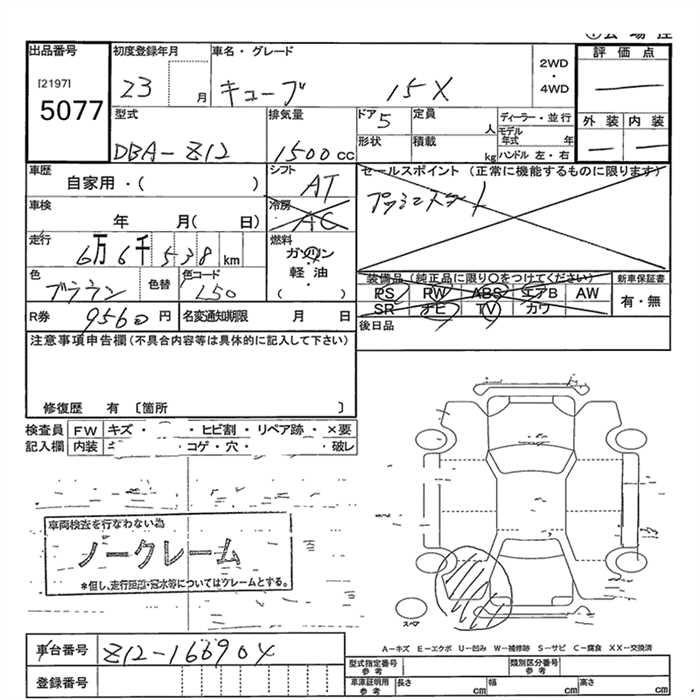 出品番号
[2197]
5077
初度登録年月
23 月
車名・グレード
キューブ 15X
2WD
・
4WD
評価点
型式
DBA-Z12
排気量
1500 cc
ドア 5
定員 人
形状
積載 kg
ディーラー・並行
モデル年式 年
ハンドル 左・右
外装 内装
車歴
自家用・( )
シフト
AT
セールスポイント(正常に機能するものに限ります)
プッシュスタート
車検
年 月( 日)
冷房
AC
走行
6万6千538 km
燃料
ガソリン
軽油
・( )
色
ブラウン
色替
色コード
L50
装備品(純正品に限り○をつけてください)
PS PW ABS エアB AW
SR ナビ TV カワ
新車保証書
有・無
R券 9560 円
名変通知期限 月 日
後日品
注意事項申告欄(不具合内容等は具体的に記入して下さい)
修復歴 有 〔箇所 〕
検査員
記入欄
FW キズ・ ・ヒビ割・リペア跡・×要
内装 ・コゲ・穴・ ・破レ
車両検査を行なわない為
ノークレーム
*但し、走行距離・冠水等についてはクレームとする。
スペア
A-キズ E-エクボ U-凹み W-補修跡 S-サビ C-腐食 XX-交換済
車台番号 Z12-166904
登録番号
型式指定番号
参考
類別区分番号
参考
車庫証明用
参考
長さ cm 幅 cm 高さ cm